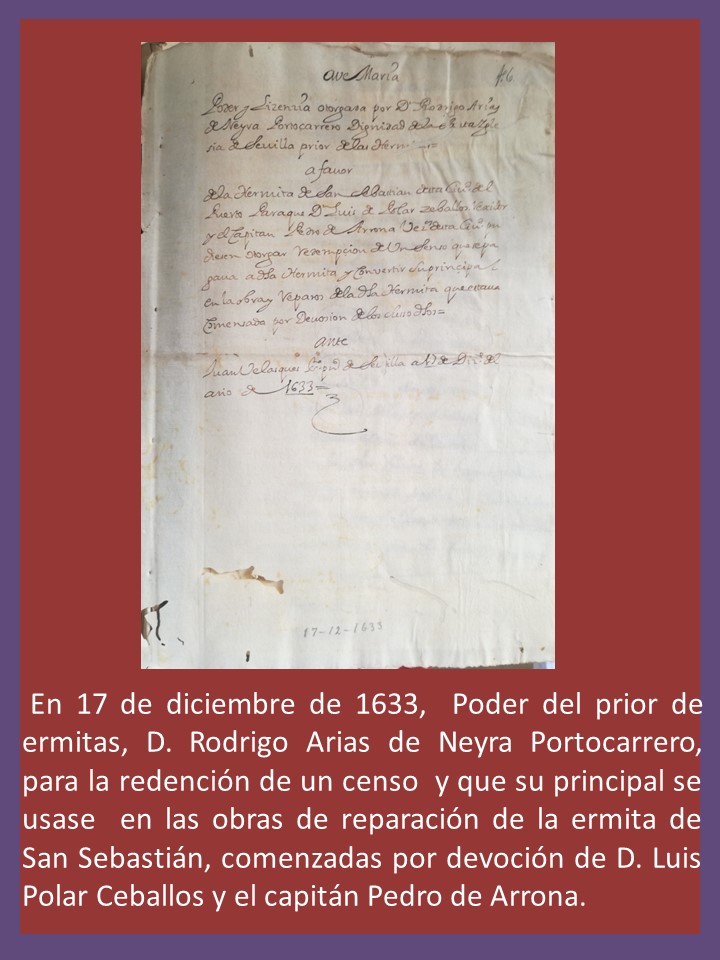 Ave Maria
f. 6
Poder y Lizenzia otorgada por Dn Rodrigo Arias
de Neyra Portocarrero Dignidad de la Sta Ygle
sia de Sevilla prior de las Hermi
a favor
de la Hermita de San Sebastian desta Ciud. del
Puerto Paraque Dn Luis de Polar Zeballos
y el Capitan Pedro de Arrona Vez.s desta Ciud pu
diesen otorgar Redempcion de Un Senso que se pa
gava a dha Hermita y Convertir su principal
en la obra y Reparos de la dha Hermita que estava
Comensada por Devosion de los suso dhos=
Ante
Juan Velasques de Sevilla a 17 de Dize. del
año de 1633=
17-12-1633
En 17 de diciembre de 1633, Poder del prior de
ermitas, D. Rodrigo Arias de Neyra Portocarrero,
para la redención de un censo y que su principal se
usase en las obras de reparación de la ermita de
San Sebastián, comenzadas por devoción de D. Luis
Polar Ceballos y el capitán Pedro de Arrona.